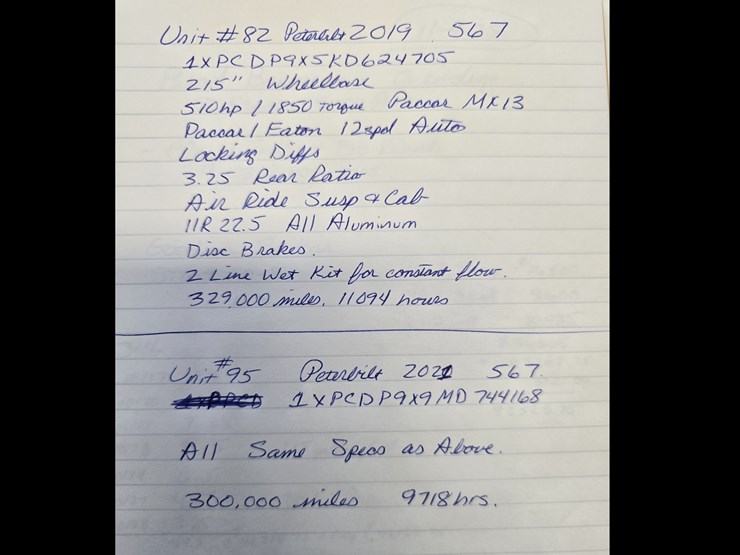 Unit #82 Peterbilt 2019 567
1XPCDP9X5KD624705
215" Wheelbase
510hp / 1850 Torque Paccar MX13
Paccar / Eaton 12spd Auto
Locking Diffs
3.25 Rear Ratio
Air Ride Susp & Cab
11R 22.5 All Aluminum
Disc Brakes.
2 Line Wet Kit for constant flow.
329,000 miles, 11094 hours
Unit #95 Peterbilt 2021 567.
1XPCDP9X9MD744168
All Same Specs as Above.
300,000 miles 9718 hrs.